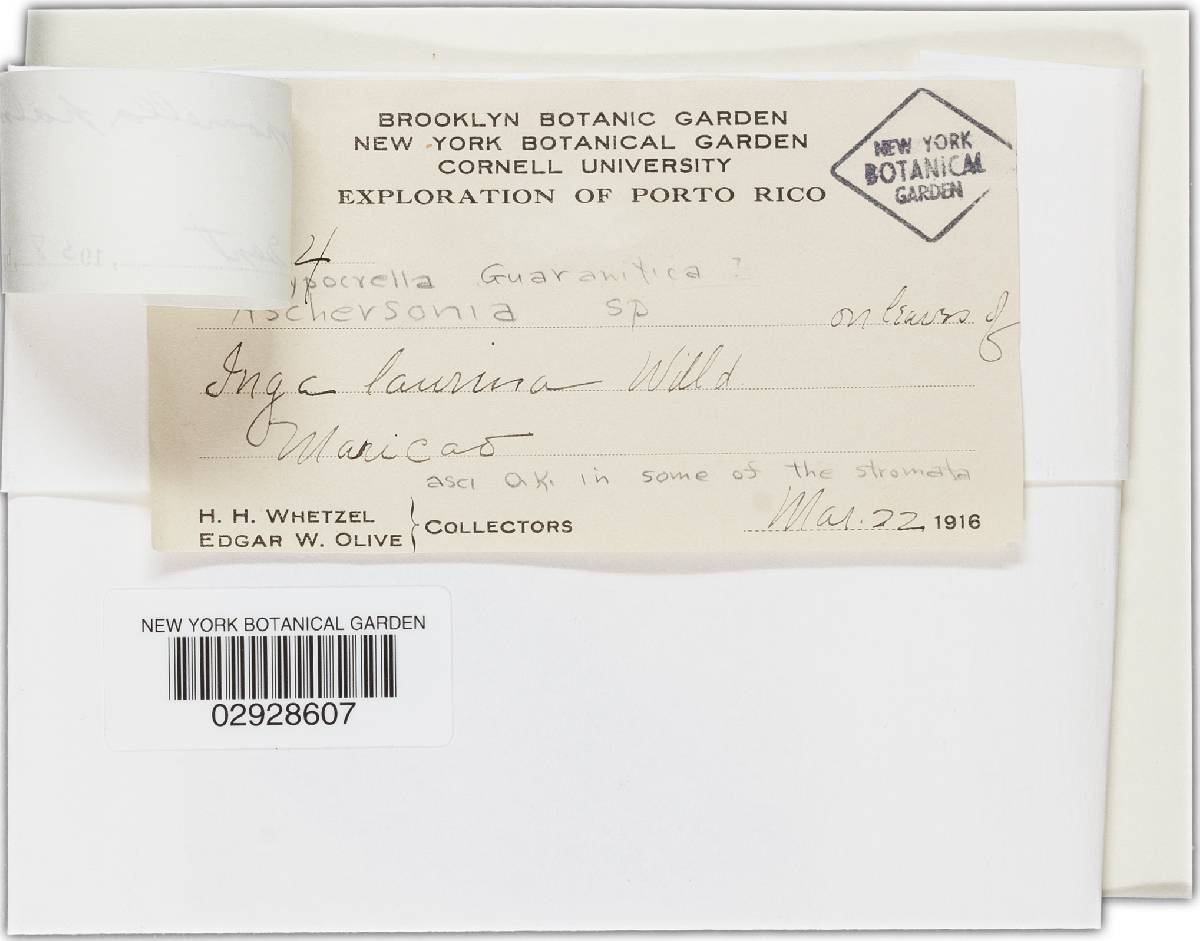 BROOKLYN BOTANIC GARDEN
NEW YORK BOTANICAL GARDEN
CORNELL UNIVERSITY
EXPLORATION OF PORTO RICO
NEW YORK
BOTANICAL
GARDEN
4
ypocrella Guaranitica ?
Aschersonia sp on leaves of
Inga laurina Willd
Maricao
asci O.K. in some of the stromata
H. H. WHETZEL
EDGAR W. OLIVE } COLLECTORS
Mar. 22 1916
NEW YORK BOTANICAL GARDEN
02928607